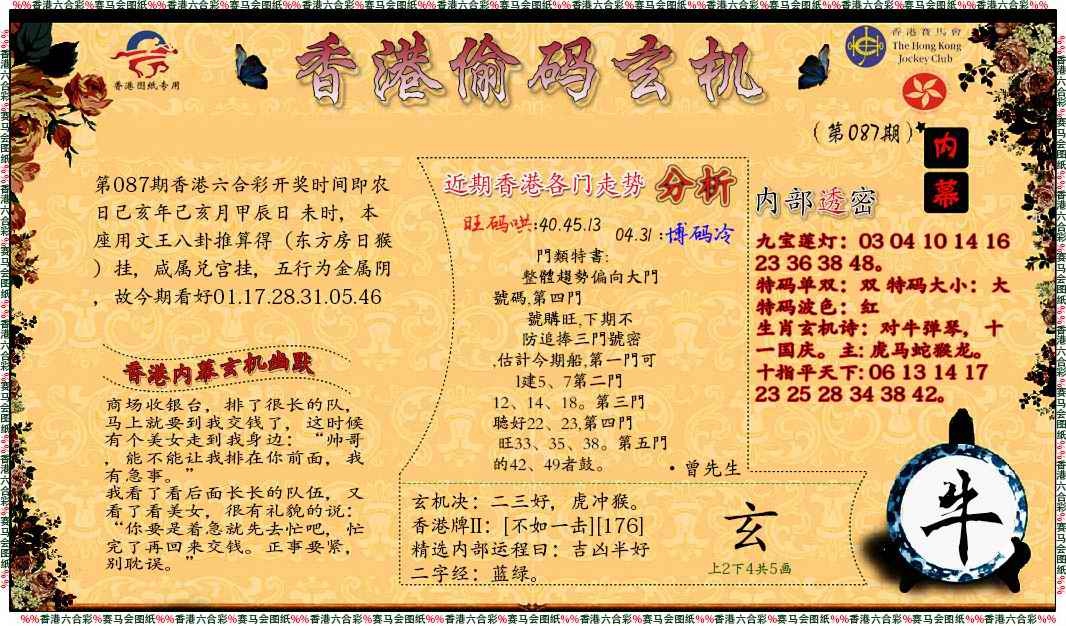 %%香港六合彩%赛马会图纸%%香港六合彩%赛马会图纸%%香港六合彩%赛马会图纸%%香港六合彩%赛马会图纸%%香港六合彩%赛马会图纸%%香港六合彩%赛马会图纸%%香港六合彩%%
香港图纸专用
香港偷码玄机
香港賽馬會
The Hong Kong
Jockey Club
(第087期)
内
幕
第087期香港六合彩开奖时间即农
日己亥年己亥月甲辰日 未时，本
座用文王八卦推算得（东方房日猴
）挂，咸属兑宫挂，五行为金属阴
，故今期看好01.17.28.31.05.46
香港内幕玄机幽默
商场收银台，排了很长的队，
马上就要到我交钱了，这时候
有个美女走到我身边：“帅哥
，能不能让我排在你前面，我
有急事。”
我看了看后面长长的队伍，又
看了看美女，很有礼貌的说：
“你要是着急就先去忙吧，忙
完了再回来交钱。正事要紧，
别耽误。”
近期香港各门走势 分析
旺码哄:40.45.13
04.31 :博码冷
門類特書:
整體趨勢偏向大門
號碼,第四門
號購旺,下期不
防追捧三門號密
,估計今期船,第一門可
1建5、7第二門
12、14、18。第三門
聰好22、23,第四門
旺33、35、38。第五門
的42、49者鼓。
•曾先生
玄机决：二三好，虎冲猴。
香港牌II：[不如一击][176]
精选内部运程曰：吉凶半好
二字经：蓝绿。
玄
上2下4共5画
内部透密
九宝莲灯：03 04 10 14 16
23 36 38 48。
特码单双：双 特码大小：大
特码波色：红
生肖玄机诗：对牛弹琴，十
一国庆。主: 虎马蛇猴龙。
十指平天下: 06 13 14 17
23 25 28 34 38 42。
牛
%%香港六合彩%赛马会图纸%%香港六合彩%赛马会图纸%%香港六合彩%赛马会图纸%%香港六合彩%赛马会图纸%%香港六合彩%赛马会图纸%%香港六合彩%赛马会图纸%%香港六合彩%%